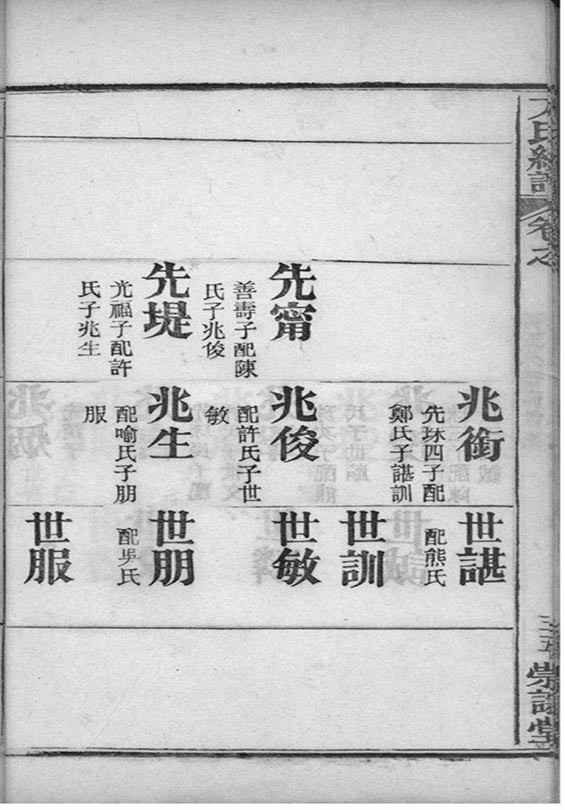 卷之
先甯
善壽子配陳
氏子兆俊
先堤
光福子配許
氏子兆生
兆銜
先四子配
鄭氏子諶訓
兆俊
配許氏子世
敏
兆生
配喻氏子朋
服
世諶
配熊氏
世訓
世敏
世朋
配氏
世服